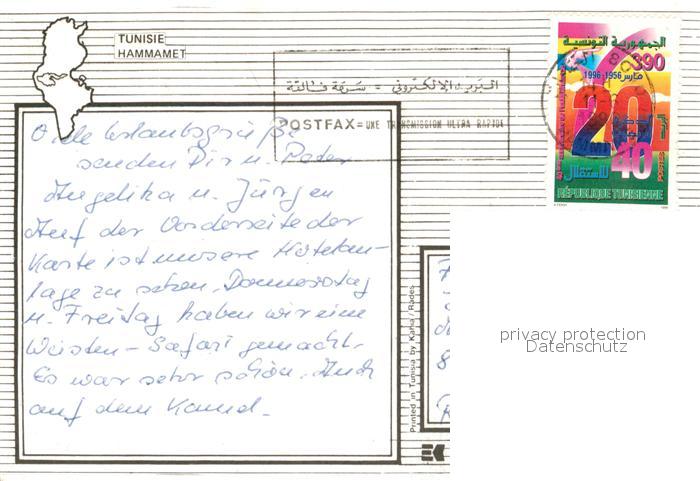 TUNISIE
HAMMAMET
البريد الإلكتروني = سرعة فائقة
POSTFAX = UNE TRANSMISSION ULTRA RAPIDE
الجمهورية التونسية
390
مارس 1956-1996
20
40
للاستقلال
البريد
POSTES
RÉPUBLIQUE TUNISIENNE
Viele Urlaubsgrüße
senden Dir u. Peter
Angelika u. Jürgen
Auf der Vorderseite der
Karte ist unsere Hotelan-
lage zu sehen. Donnerstag
u. Freitag haben wir eine
Wüsten-Safari gemacht.
Es war sehr schön. Auch
auf dem Kamel.
Printed in Tunisia by Kahia / Rades
privacy protection
Datenschutz